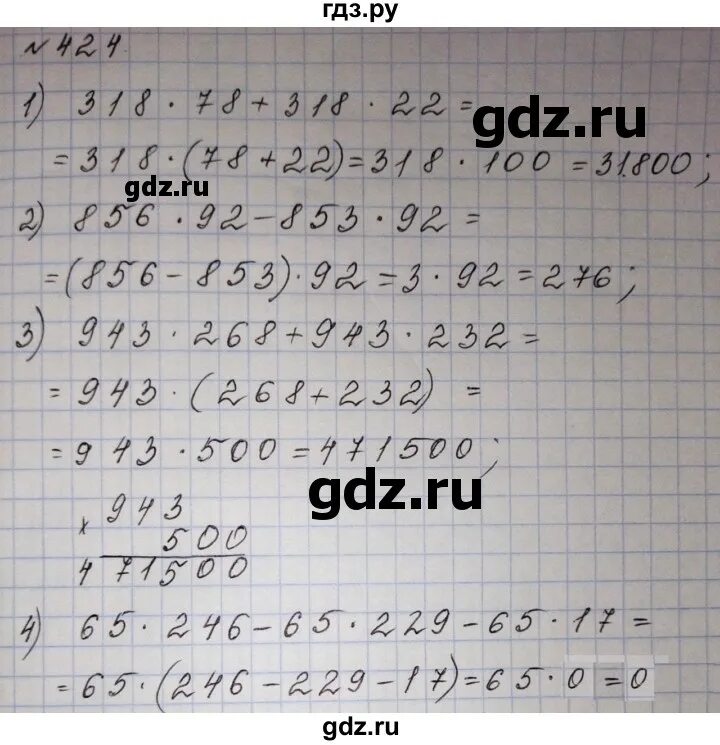 гдз.ру
№ 424
1) 318 · 78 + 318 · 22 =
gdz.ru
= 318 · (78 + 22) = 318 · 100 = 31.800 ;
gdz.ru
2) 856 · 92 - 853 · 92 =
= (856 - 853) · 92 = 3 · 92 = 276 ;
3) 943 · 268 + 943 · 232 =
= 943 · (268 + 232) =
= 943 · 500 = 471500 ;
gdz.ru
x 943
500
471500
4) 65 · 246 - 65 · 229 - 65 · 17 =
= 65 · (246 - 229 - 17) = 65 · 0 = 0
gdz.ru